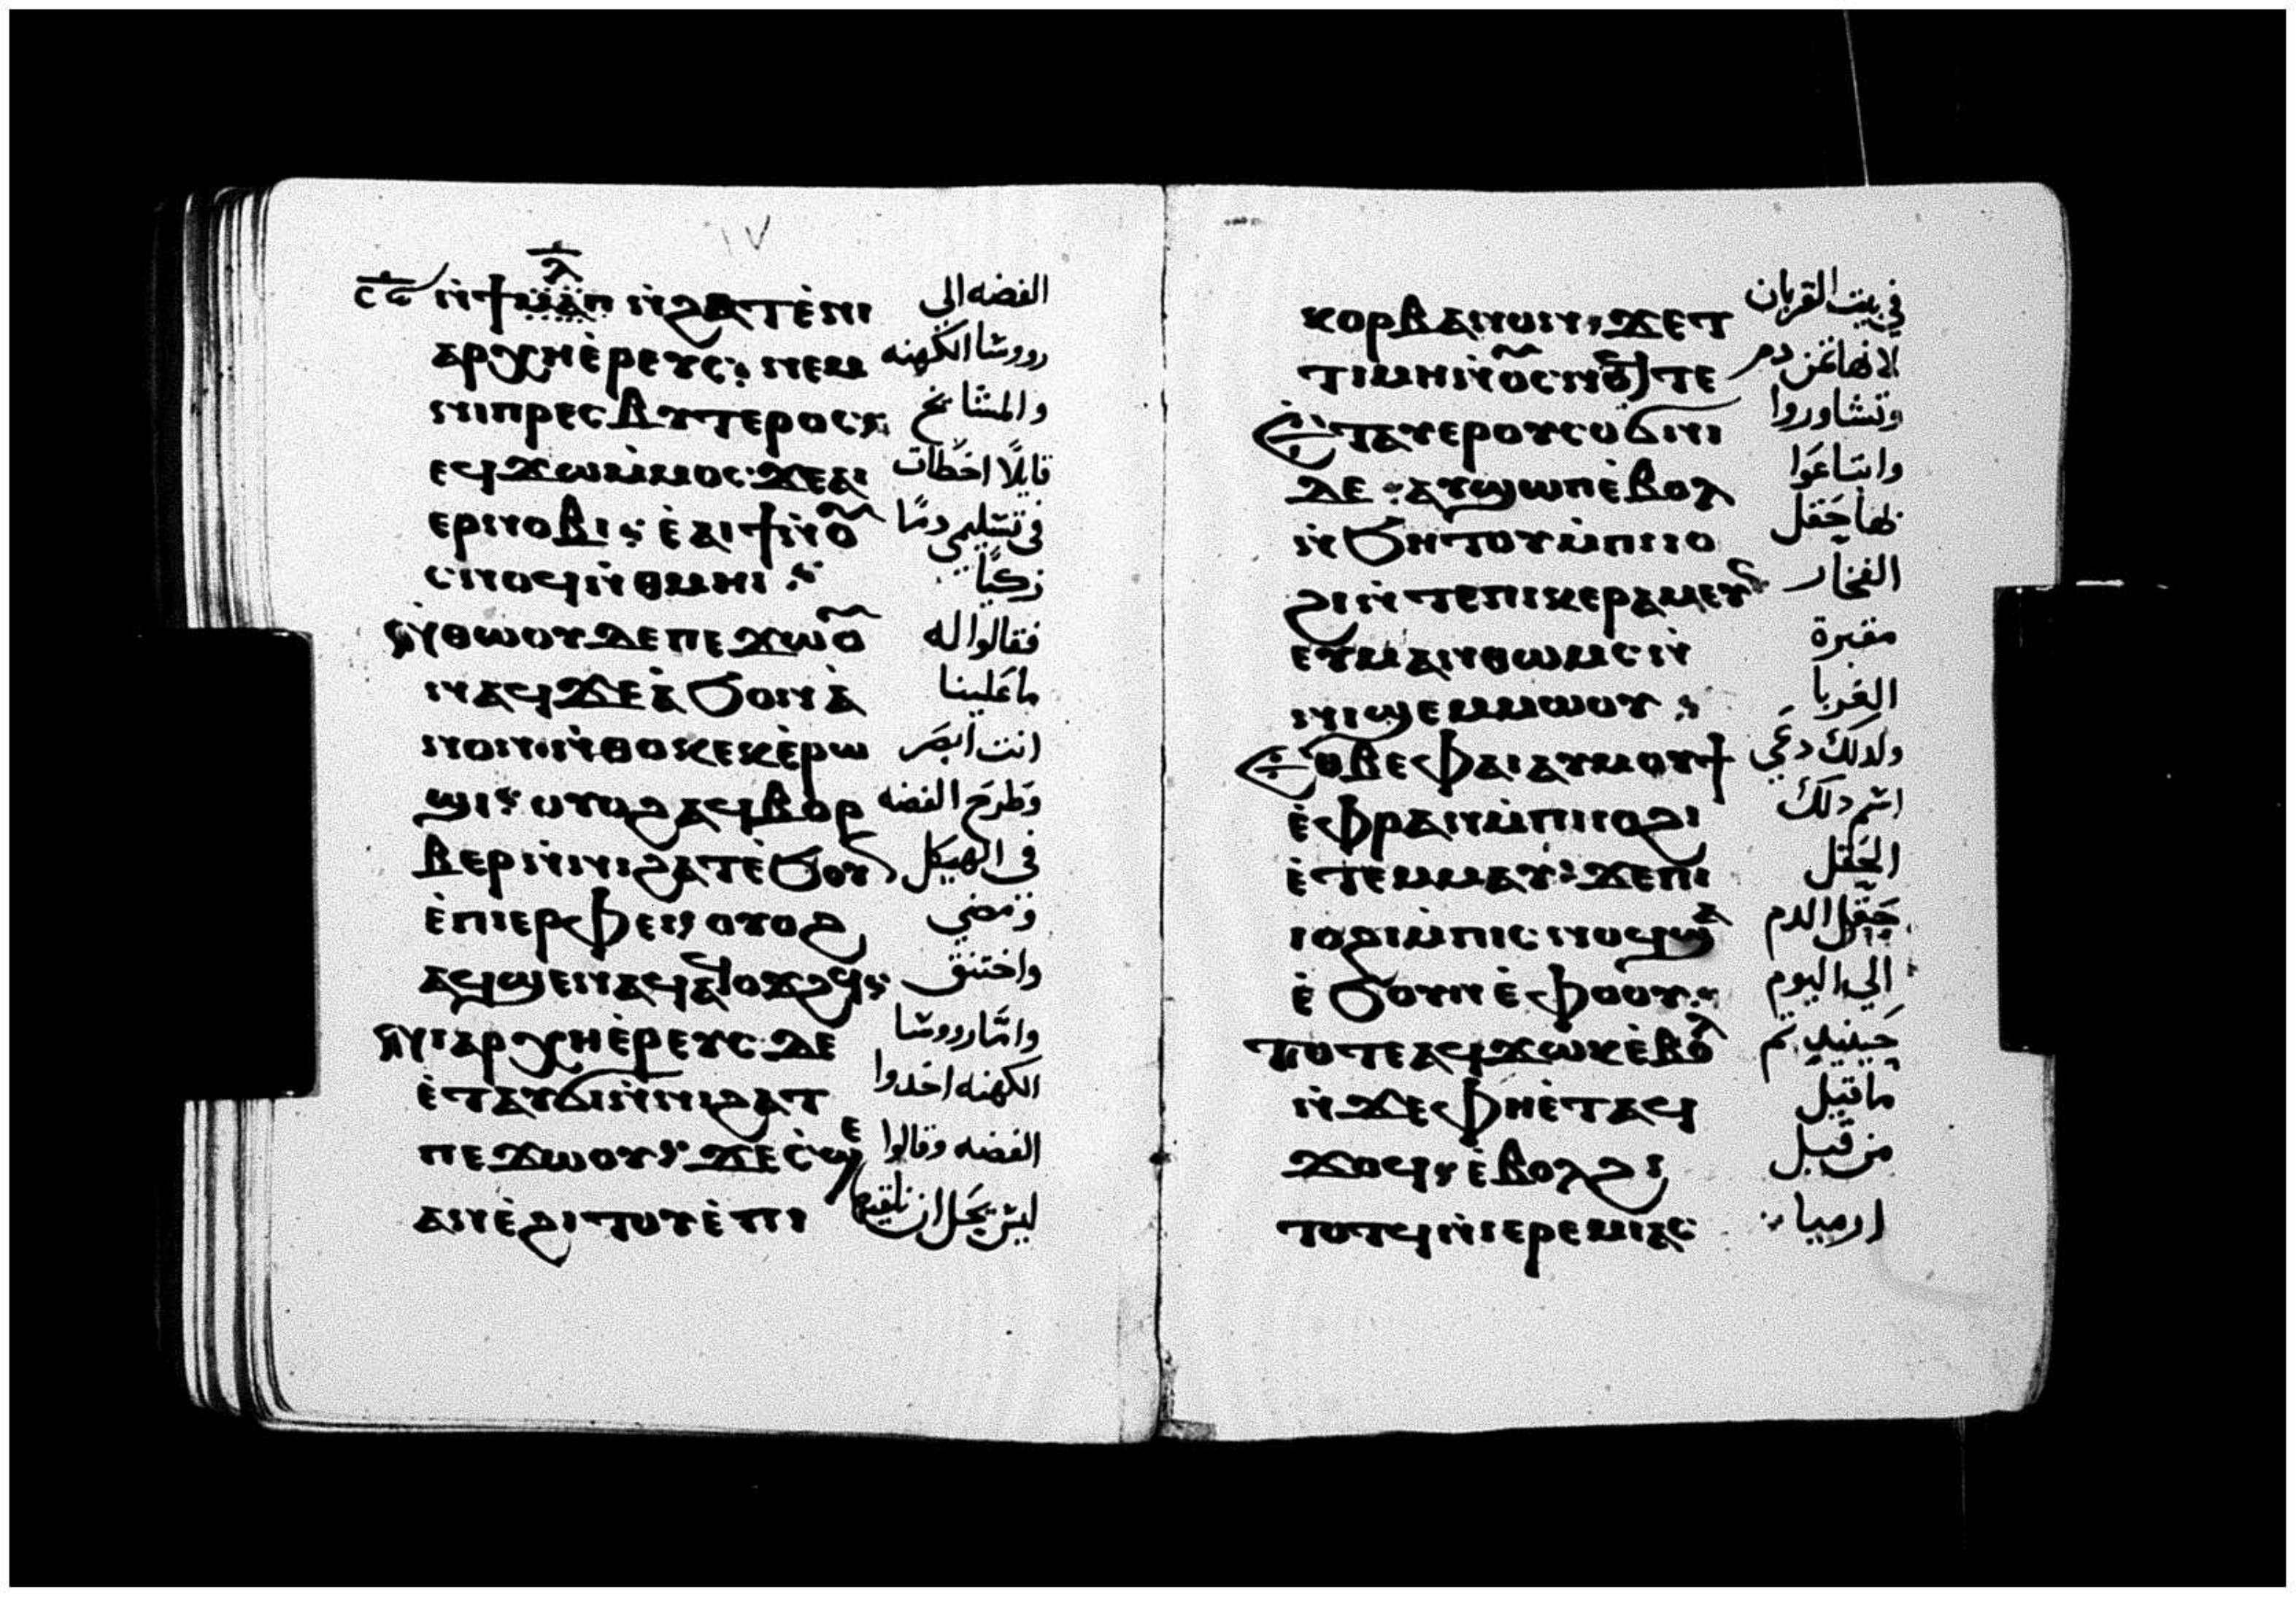 ⲛ̀ϯⲙ̀ⲁ̅ⲗ̅ⲡ ⲛ̀ϩⲁⲧ ⲉ̀ⲛⲓ الفضه الى
ⲁⲣⲭⲏⲉ̀ⲣⲉⲩⲥ: ⲛⲉⲙ رووسا الكهنه
ⲛⲓⲡⲣⲉⲥⲃⲩⲧⲉⲣⲟⲥ: والمشايخ
ⲉϥϫⲱⲙ̀ⲙⲟⲥ: ϫⲉⲁⲓ قايلًا اخطات
ⲉⲣⲛⲟⲃⲓ: ⲉ̀ⲁⲓϯⲛ̀ⲟ̅ فى تسليمى دمًا
ⲥⲛⲟϥⲛ̀ⲑⲙⲏⲓ: زكيًا
ⲛ̀ⲑⲱⲟⲩ ⲇⲉ ⲡⲉϫⲱⲟ̅ فقالوا له
ⲛⲁϥ ϫⲉ ⲁ̀ϧⲟⲛⲁ̀ ما علينا
ⲛⲟⲛ: ⲛ̀ⲑⲟⲕ ⲉⲕⲉ̀ⲣⲱ انت ابصر
ϣⲓ: ⲟⲩⲟϩ ⲁϥⲃⲟⲣ وطرح الفضه
ⲃⲉⲣ ⲛ̀ⲛⲓϩⲁⲧ ⲉ̀ϧⲟⲩⲛ فى الهيكل
ⲉ̀ⲡⲓⲉⲣⲫⲉⲓ: ⲟⲩⲟϩ ومضى
ⲁϥϣⲉⲛⲁϥ ⲁϥⲟϫϩϥ: واختنق
ⲛⲓⲁⲣⲭⲏⲉ̀ⲣⲉⲩⲥ ⲇⲉ وامّا رووسا
ⲉ̀ⲧⲁⲩϭⲓ ⲛ̀ⲛⲓϩⲁⲧ الكهنه اخدوا
ⲡⲉϫⲱⲟⲩ: ϫⲉ ⲥ̀ϣⲉ الفضه وقالوا
ⲁⲛ ⲉ̀ϩⲓⲧⲟⲩ ⲉ̀ⲡⲓ ليس يحل ان نلقيها
ⲕⲟⲣⲃⲁⲛⲟⲛ: ϫⲉ ⲧ فى بيت القربان
ⲧⲓⲙⲏ ⲛ̀ⲟ̅ⲥⲛⲟϥ ⲧⲉ لانها ثمن دم
ⲉ̀ⲧⲁⲩⲉⲣⲟⲩⲥⲟϭⲛⲓ وتشاوروا
ⲇⲉ: ⲁⲩϣⲱⲡ ⲉ̀ⲃⲟⲗ وابتاعوا
ⲛ̀ϧⲏⲧⲟⲩ ⲙ̀ⲡⲓⲓⲟ بها حقل
ϩⲓ ⲛ̀ⲧⲉ ⲡⲓⲕⲉⲣⲁⲙⲉⲩⲥ الفخار
ⲉⲩⲙⲁⲛⲑⲱⲙⲥ ⲛ̀ مقبرة
ⲛⲓϣⲉⲙⲙⲱⲟⲩ: الغربا
ⲉⲑⲃⲉⲫⲁⲓ ⲁⲩⲙⲟⲩϯ ولدلك دعى
ⲉ̀ⲫⲣⲁⲛ ⲙ̀ⲡⲓⲓⲟϩⲓ اسم دلك
ⲉ̀ⲧⲉⲙⲙⲁⲩ: ϫⲉ ⲡⲓ الحقل
ⲓⲟϩⲓ ⲙ̀ⲡⲓⲥⲛⲟϥ ϣⲁ حقل الدم
ⲉ̀ϧⲟⲩⲛ ⲉ̀ⲫⲟⲟⲩ: الى اليوم
ⲧⲟⲧⲉ ⲁϥϫⲱⲕ ⲉ̀ⲃⲟⲗ حينيد تم
ⲛ̀ϫⲉ ⲫⲏⲉ̀ⲧⲁϥ ما قيل
ϫⲟϥ: ⲉ̀ⲃⲟⲗ ϩⲓ من قبل
ⲧⲟⲧϥ ⲛ̀ⲓⲉⲣⲉⲙⲓⲁⲥ ارميا